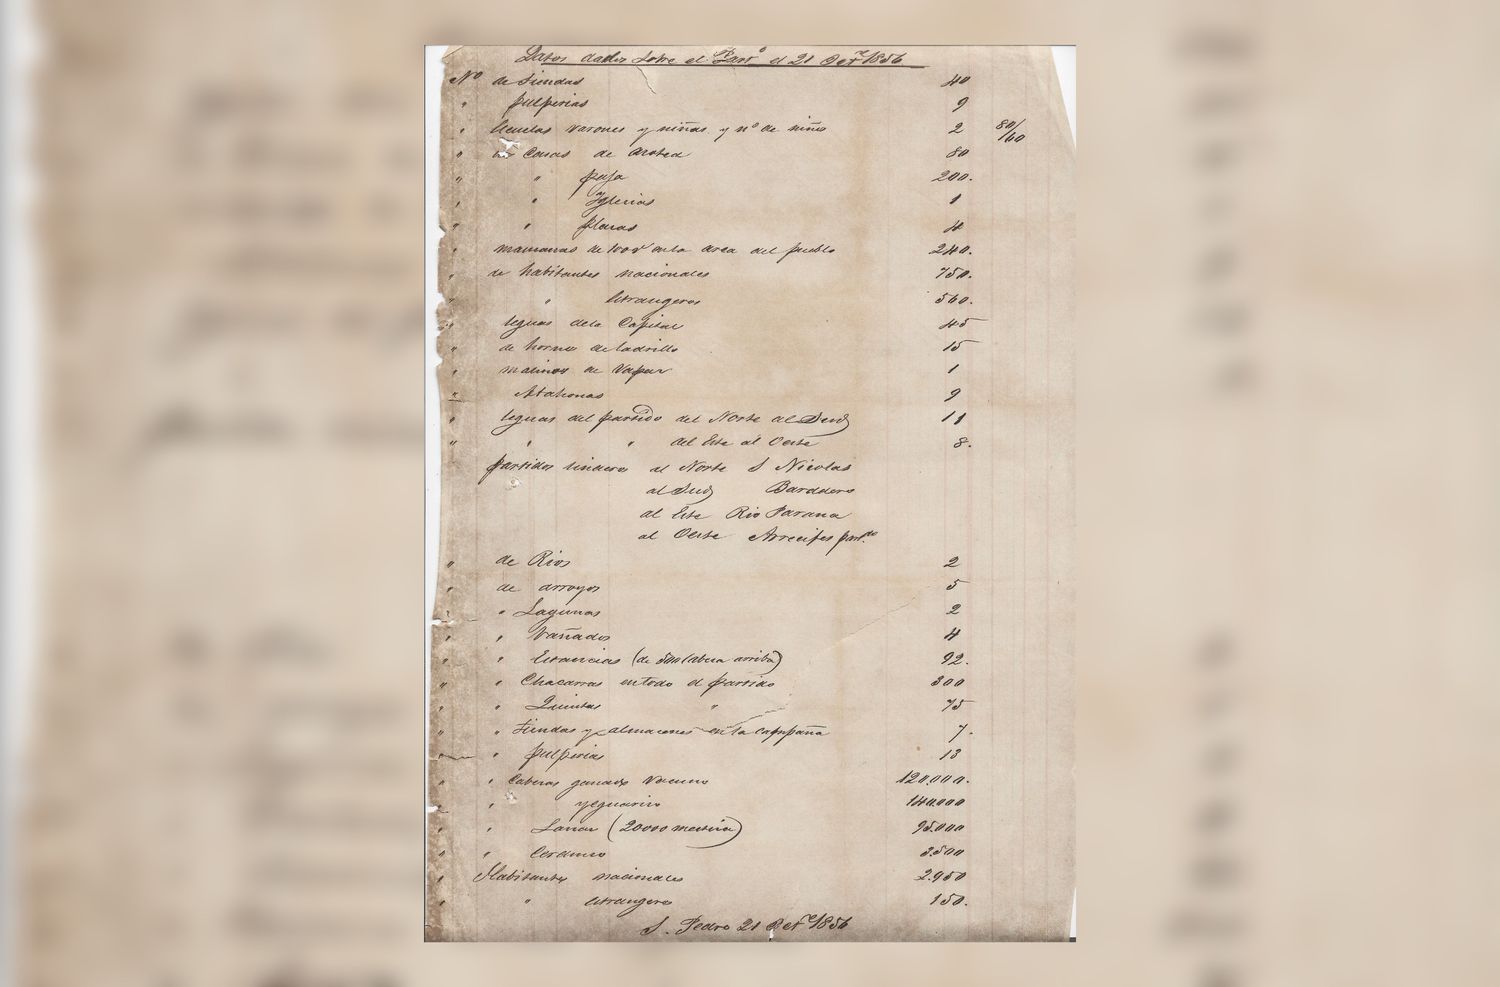 Datos dados sobre el Part.º el 21 Oct.e 1856
Nº de tiendas 40
" pulperias 9
" Escuelas varones y niñas y nº de niños 2 80/60
" de Casas de azotea 80
" " paja 200.
" " Yglesias 1
" " plazas 4
" manzanas de 100 vs en la area del pueblo 240.
" de habitantes nacionales 750.
" " Estrangeros 560.
" leguas dela Capital 45
" de hornos de ladrillo 15
" molinos de Vapor 1
" Atahonas 9
" leguas del partido del Norte al Sud 11
" " " del Este al Oeste 8.
partidos linderos al Norte S Nicolas
al Sud Baradero
al Este Rio Parana
al Oeste Arrecifes part.do
" de Rios 2
" de arroyos 5
" " Lagunas 2
" " Vañados 4
" " Estancias (de 500 cabezas arriba) 92.
" " Chacarras en todo el partido 300
" " Quintas " 75
" " tiendas y almacenes en la campaña 7.
" " pulperias 13
" " Cabezas ganado Vacuno 120.000.
" " yeguarizo 140.000
" " Lanar (20000 mestiza) 95.000
" " Cerduno 3.500
" Habitantes nacionales 2.950
" " estrangeros 150.
S. Pedro 21 Oct.e 1856